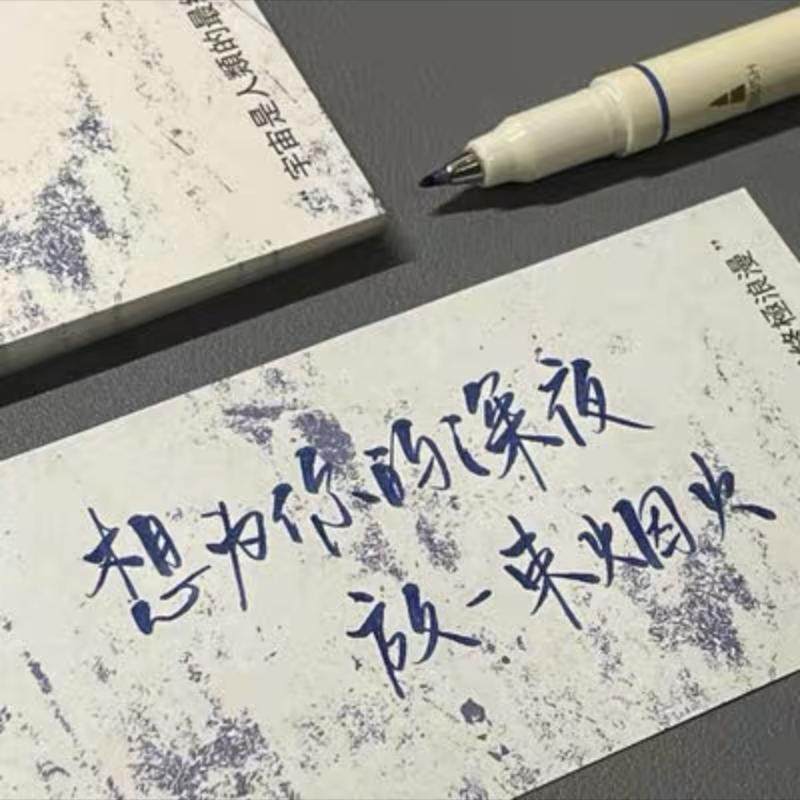 “宇宙是人類的最
極浪漫”
想为你的深夜
放一束烟火